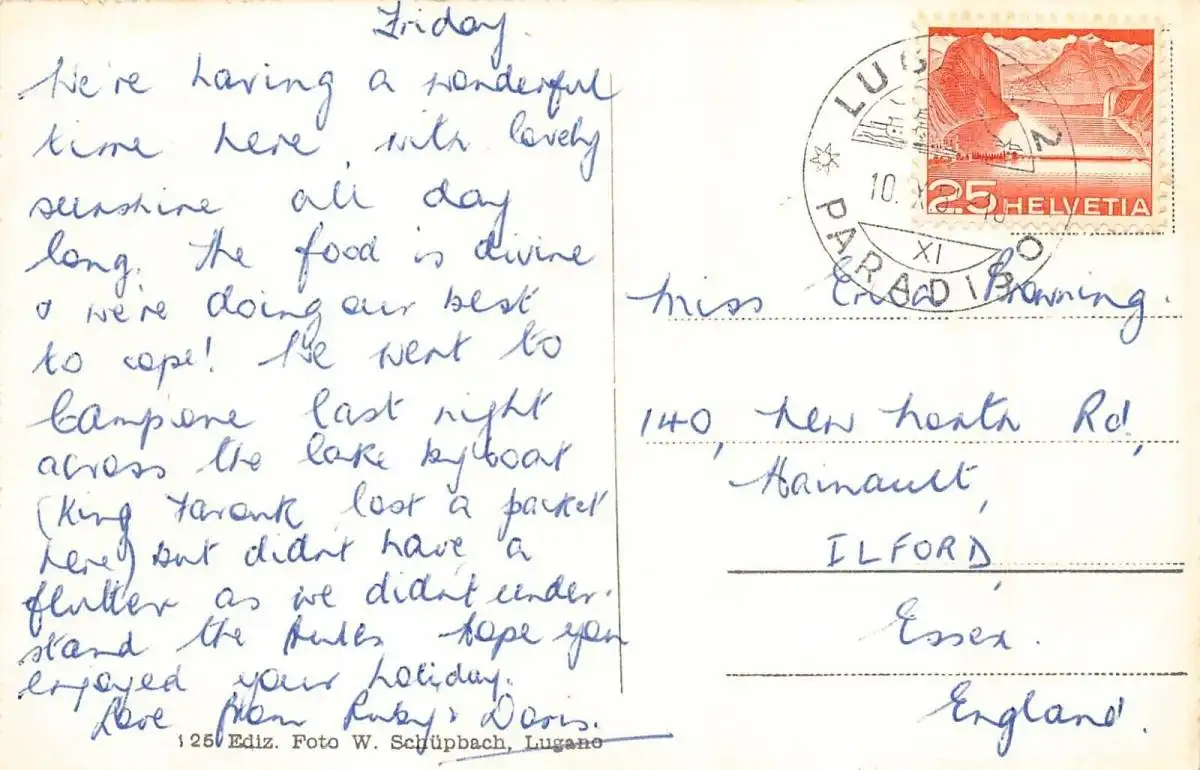 Friday.
We're having a wonderful
time here, with lovely
sunshine all day
long. The food is divine
& we're doing our best
to cope! We went to
Campione last night
across the lake by boat
(King Farouk lost a packet
here) but didn't have a
flutter as we didn't under-
stand the rules. Hope you
enjoyed your holiday.
Love from Ruby & Doris.
125 Ediz. Foto W. Schüpbach, Lugano
LUG 2
10. X
XI
PARADISO
25 HELVETIA
Miss Browning.
140, New North Rd,
Hainault,
ILFORD,
Essex.
England.